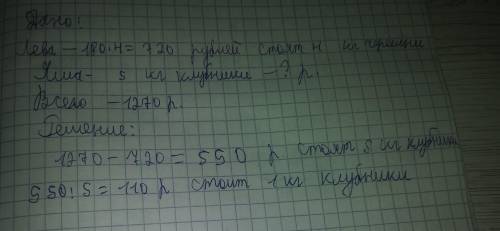 Дано:
Лева – 180·4 = 720 рублей стоят 4 кг черешни
Яша – 5 кг клубники – ? р.
Всего – 1270 р.
Решение:
1270 – 720 = 550 р стоят 5 кг клубники
550 : 5 = 110 р стоит 1 кг клубники